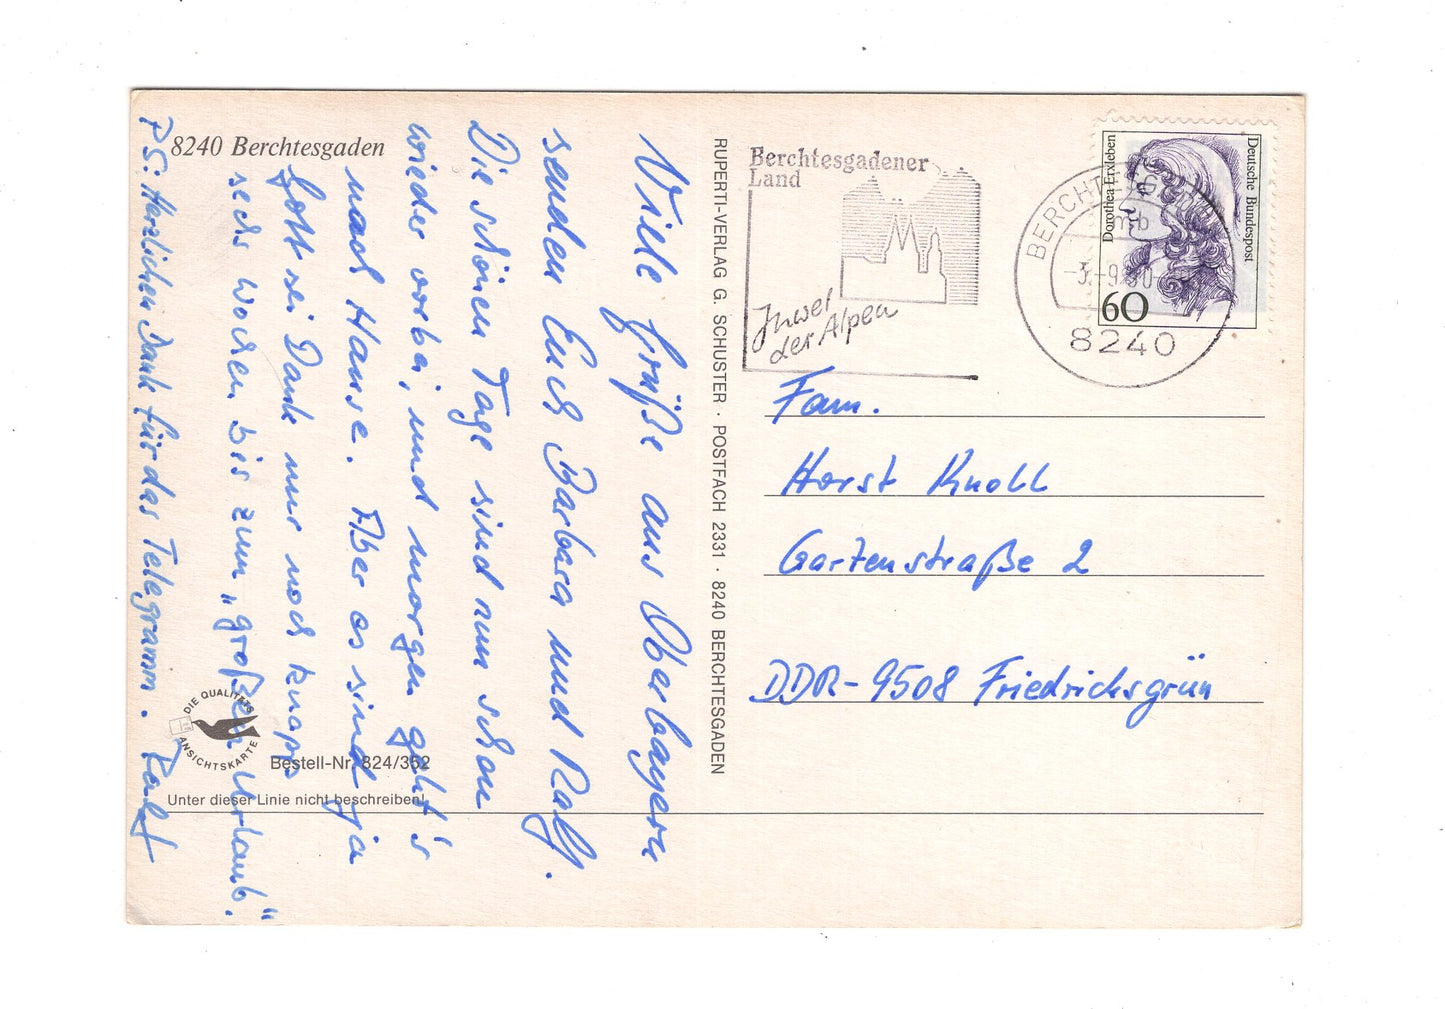 8240 Berchtesgaden
Viele Grüße aus Oberbayern
senden Euch Barbara und Ralf.
Die schönen Tage sind nun schon
wieder vorbei, und morgen geht's
nach Hause. Aber es sind ja
Gott sei Dank nur noch knapp
sechs Wochen bis zum „großen Urlaub."
PS: Herzlichen Dank für das Telegramm. Ralf
DIE QUALITÄTS
ANSICHTSKARTE
Bestell-Nr. 824/352
Unter dieser Linie nicht beschreiben!
RUPERTI-VERLAG G. SCHUSTER · POSTFACH 2331 · 8240 BERCHTESGADEN
Berchtesgadener
Land
Juwel
der Alpen
-3.-9.90
8240
Dorothea Erxleben
Deutsche Bundespost
60
Fam.
Horst Knoll
Gartenstraße 2
DDR-9508 Friedrichsgrün